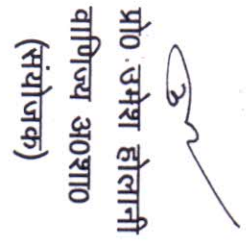 प्रो० उमेश होलानी
वाणिज्य अ०शा०
(संयोजक)